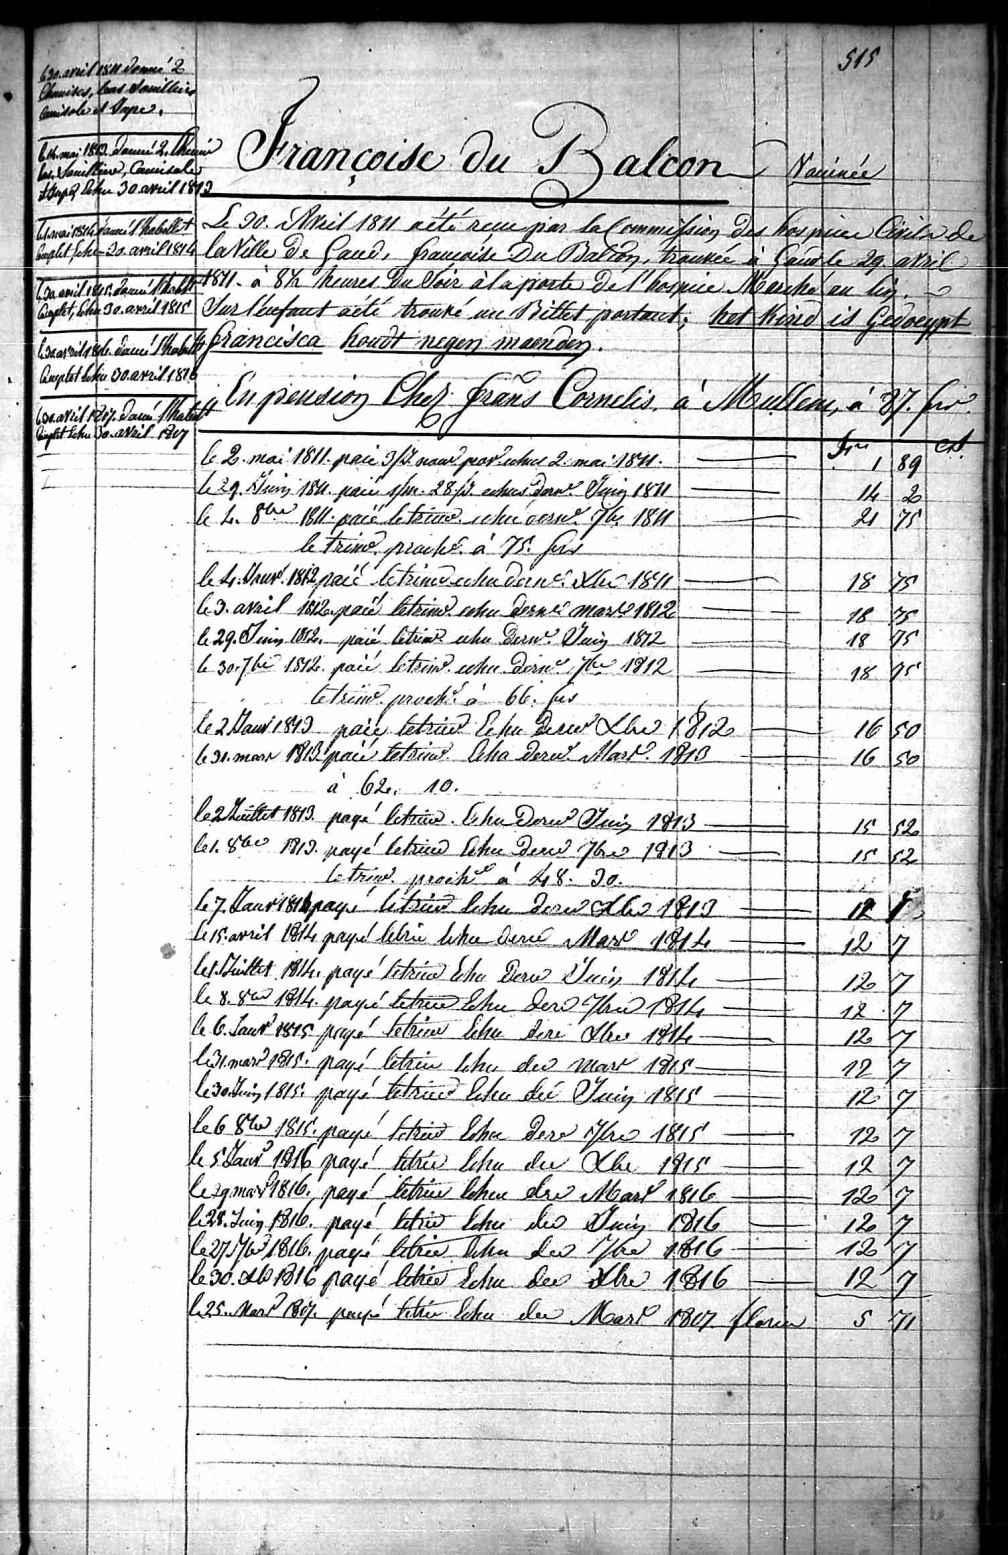 515
le 30. avril 1811 donné 2
Chemises, bas Souilliers
Camisole et Jupe.
le 14. mai 1813. donné 2. Chemise
bas. Souilliers, Camisole
& Jupe Echu 30 avril 1813
le 1. mai 1814 donné l'habillet
Complet Echu 30. avril 1814
le 30 avril 1815. donné l'habillt
Complet, Echu 30. avril 1815
le 30 avril 1816. donné l'habillt
Complet Echu 30 avril 1816
le 30. avril 1817. donné l'habillt
Complet Echu 30. avril 1817
Françoise du Balcon Nominée
Le 30. Avril 1811 a été recue par la Commission des hospices Civils de
la Ville de Gand, francoise Du Balcon, trouvée à Gand le 29 avril
1811. à 8½ heures du Soir à la porte de l'hospice Marché au lin.
Sur l'enfant a été trouvé un Billet portant; het kind is Gedoeypt
francisca houdt negen maenden.
En pension Chez frans Cornelis, à Mullem, à 87. frs
Frs cts
le 2. mai 1811. paié 3/Jrs nour por echus 2. mai 1811. 1 89
le 29. Juin 1811. paié 1/m. 28/Jrs echus dernr Juin 1811 14 2
le 4. 8bre 1811. paié le trimre echu dernr 7bre 1811 21 75
le trimre prochn à 75. frs
le 4. Janvr 1812 paié le trimre echu dernr Xbre 1811 18 75
le 3. avril 1812. paié le trimre echu dernr mars 1812 18 75
le 29. Juin 1812. paié le trimre echu dernr Juin 1812 18 75
le 30. 7bre 1812. paié le trimre echu dernr 7bre 1812 18 75
le trimre prochn à 66. frs
le 2 Janr 1813 paié le trimre Echu dernr Xbre 1812 16 50
le 31. mars 1813. paié le trimre Echu dernr Mars 1813 16 50
à 62. 10.
le 2 Juillet 1813. payé le trimre Echu dernr Juin 1813 15 52
le 1. 8bre 1813. payé le trimre Echu dernr 7bre 1813 15 52
le trimre prochn à 48. 30.
le 7. Janvr 1814 payé le trimre Echu dernr Xbre 1813 12
le 15. avril 1814 payé le trim Echu dernr Mars 1814 12 7
le 1. Juillet 1814. payé le trimre Echu dernr Juin 1814 12 7
le 8. 8bre 1814. payé le trimre Echu dernr 7bre 1814 12 7
le 6. Janvr 1815 payé le trimre Echu derr Xbre 1814 12 7
le 31. mars 1815. payé le trim Echu der mars 1815 12 7
le 30. Juin 1815. payé le trimre Echu der Juin 1815 12 7
le 6 8bre 1815. payé le trimre Echu derr 7bre 1815 12 7
le 5 Janvr 1816 payé le trim Echu der Xbre 1815 12 7
le 29 mars 1816. payé le trim Echu der Mars 1816 12 7
le 28. Juin 1816. payé le trim Echu der Juin 1816 12 7
le 27. 7bre 1816. payé le trim Echu der 7bre 1816 12 7
le 30. Xbre 1816 payé le trim Echu der Xbre 1816 12 7
le 25. Mars 1817. payé le trim Echu der Mars 1817 florin 5 71